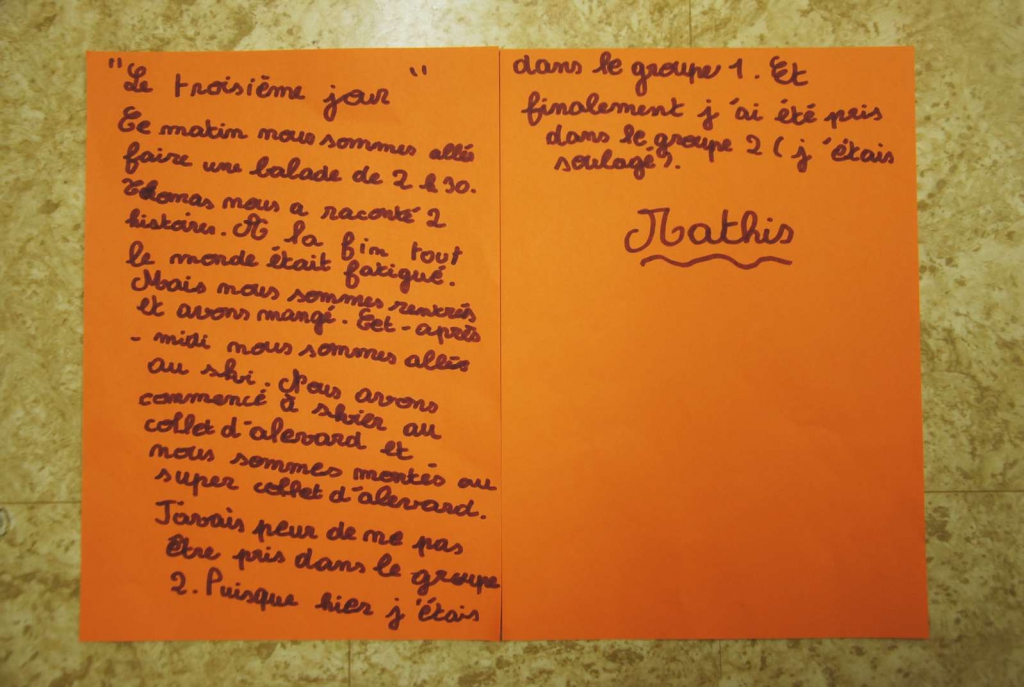 "Le troisième jour"
Ce matin nous sommes allés
faire une balade de 2 h 30.
Thomas nous a raconté 2
histoires. A la fin tout
le monde était fatigué.
Mais nous sommes rentrés
et avons mangé. Cet-après
-midi nous sommes allés
au ski. Nous avons
commencé à skier au
collet d'alevard et
nous sommes montés au
super collet d'alevard.
J'avais peur de ne pas
être pris dans le groupe
2. Puisque hier j'étais
dans le groupe 1. Et
finalement j'ai été pris
dans le groupe 2 (j'étais
soulagé).
Mathis